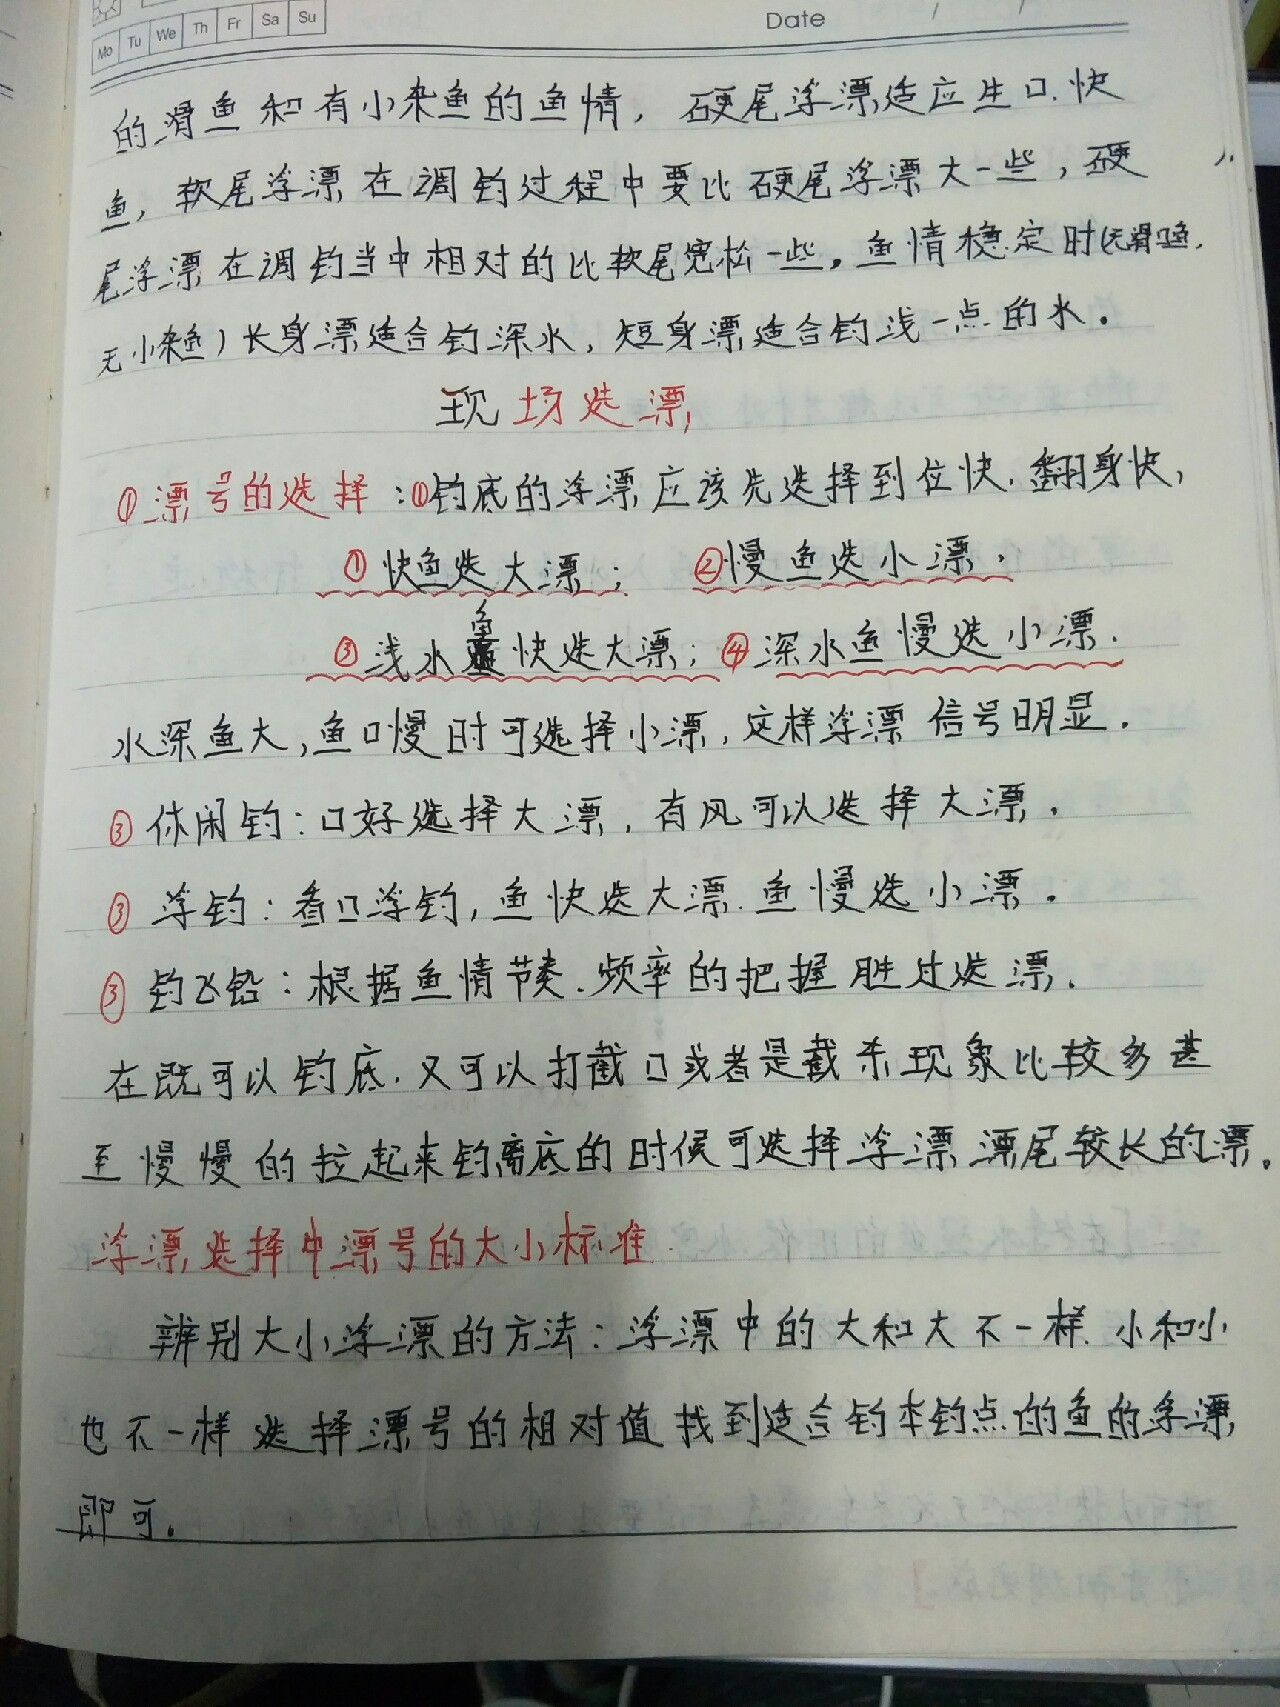 Mo Tu We Th Fr Sa Su
Date
的滑鱼和有小杂鱼的鱼情，硬尾浮漂适应生口.快
鱼，软尾浮漂在调钓过程中要比硬尾浮漂大一些，硬
尾浮漂在调钓当中相对的比软尾宽松一些。鱼情稳定时(无滑鱼.
无小杂鱼)长身漂适合钓深水，短身漂适合钓浅一点的水.
现场选漂
①漂号的选择:①钓底的浮漂应该先选择到位快.翻身快,
①快鱼选大漂; ②慢鱼选小漂.
③浅水鱼快选大漂; ④深水鱼慢选小漂.
水深鱼大,鱼口慢时可选择小漂,这样浮漂信号明显.
③休闲钓:口好选择大漂,有风可以选择大漂.
③浮钓:看口浮钓,鱼快选大漂.鱼慢选小漂.
③钓飞铅:根据鱼情节奏.频率的把握胜过选漂.
在既可以钓底.又可以打截口或者是截杀现象比较多甚
至慢慢的拉起来钓离底的时候可选择浮漂漂尾较长的漂。
浮漂选择中漂号的大小标准.
辨别大小浮漂的方法:浮漂中的大和大不一样.小和小
也不一样选择漂号的相对值找到适合钓本钓点的鱼的浮漂
即可。